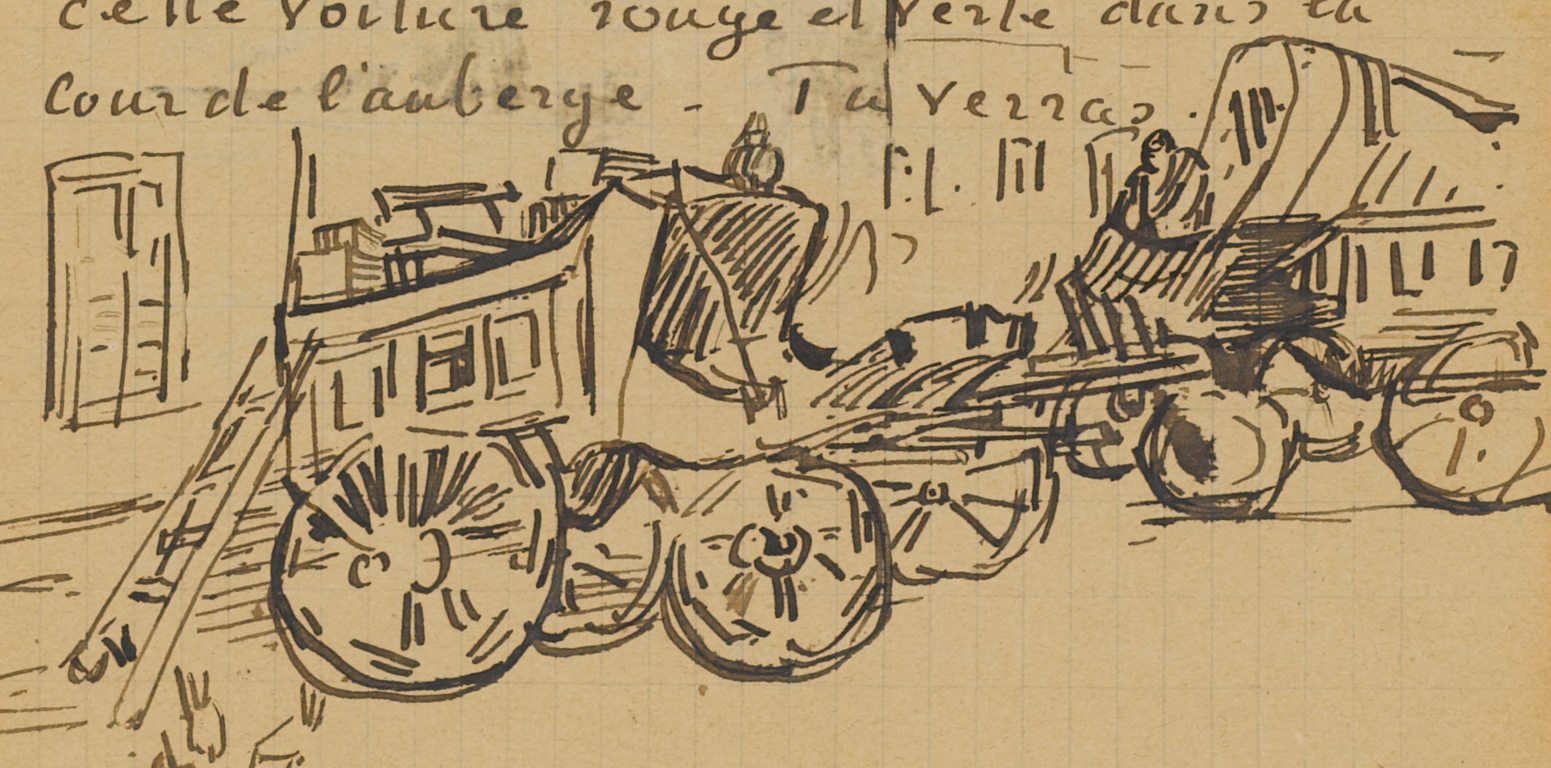 cette voiture rouge et verte dans la
cour de l'auberge. Tu verras.